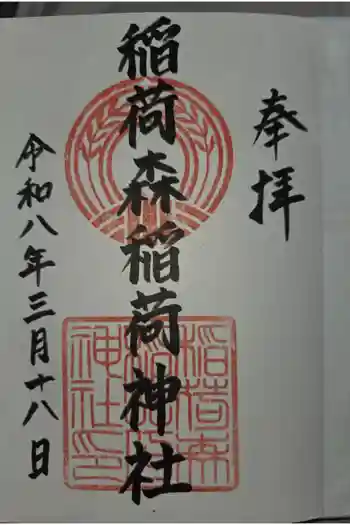 奉拝
稲荷森稲荷神社
稲荷森
稲荷
神社印
令和八年三月十八日